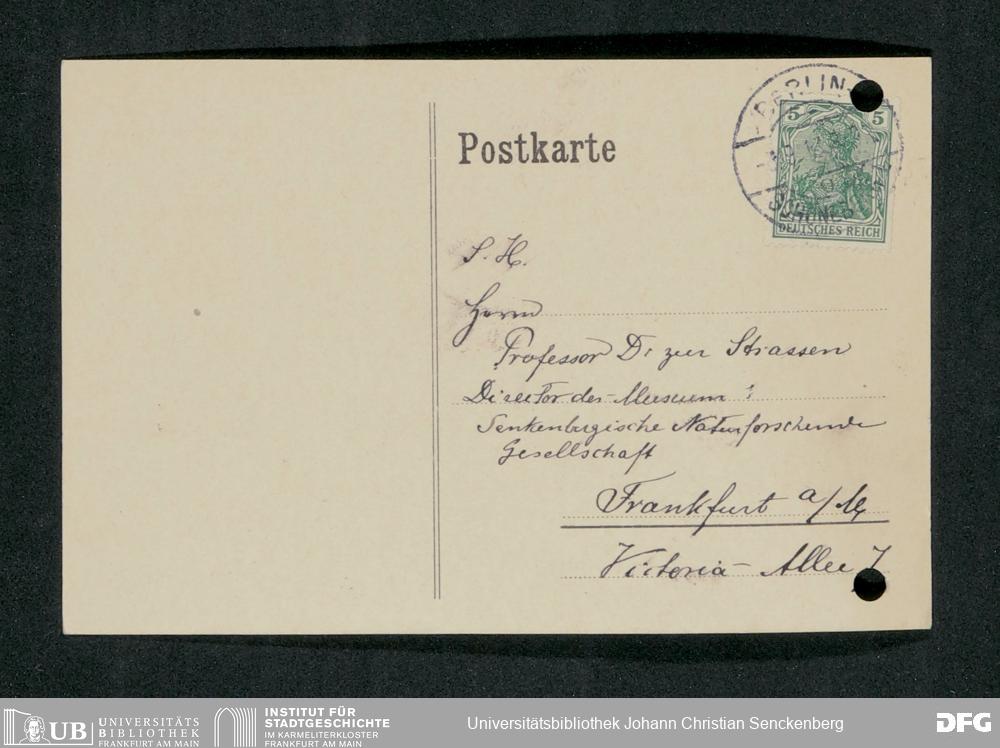 Postkarte
BERLIN-
SCHÖNEB
5 5
DEUTSCHES REICH
S. H.
Herrn
Professor Dr zur Strassen
Director des Museum:
Senkenburgische Naturforschende
Gesellschaft
Frankfurt a/M
Victoria-Allee 7
UB
UNIVERSITÄTS
BIBLIOTHEK
FRANKFURT AM MAIN
INSTITUT FÜR
STADTGESCHICHTE
IM KARMELITERKLOSTER
FRANKFURT AM MAIN
Universitätsbibliothek Johann Christian Senckenberg
DFG